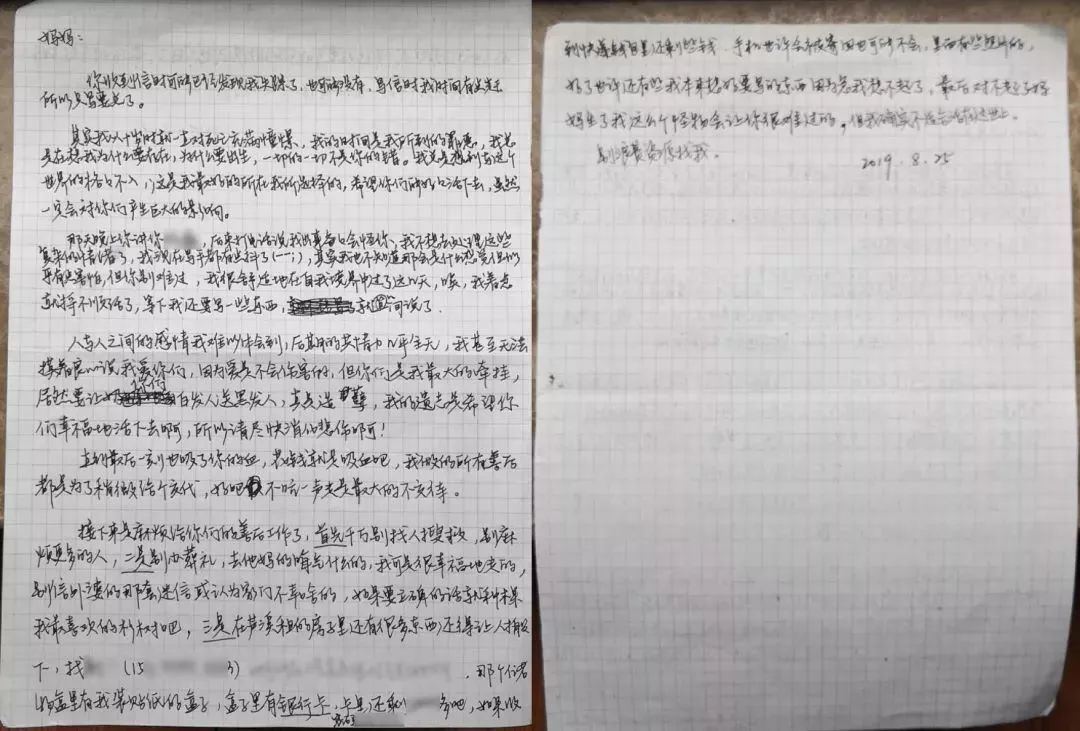 妈妈：
你收到信时可能已经发现我失踪了，也可能没有，写信时我时间有点赶
所以只写要点了。
其实我从十岁时就一直对死亡充满憧憬，我的时间是我所
是在想我为什么要存在，为什么要出生，一切的一切不是你的错。我总是想到去这个
世界的，这是我最好的所在我所选择的，希望你们能好好活下去，虽然
一定会对你们产生巨大的影响。
那天晚上你讲你 ，后来打电话说我出事者会怪你，我不想去处理这些
复杂的情绪了，我现在写字都有点抖了(一；)，其实我也不知道那会是什么感觉但似
乎有点害怕，但你别难过，我很舒适地在自我境界中过了这几天，唉，我着急
等下我还要写一些东西，
人与人之间的感情我难以体会到，后期的共情力几乎全无，我甚至无法
摸着良心说我爱你们，因为爱是不会伤害的，但你们是我最大的牵挂，
居然要让你们白发人送黑发人，真是造孽，我的遗志是希望你
们幸福地活下去啊，所以请尽快消化悲伤啊！
直到最后一刻也吸了你的血，若啥钱就是吸血吧，我做的所有善后
都是为了稍微给个交代，好吧不吭一声走是最大的不交待。
接下来是麻烦给你们的善后工作了，首先千万别找人搜救，别麻
烦更多的人，二是别办葬礼，去他妈的晦气什么的，我可是很幸福地走的，
别信外婆的那套迷信或认为家门不幸啥的，如果要立碑的话就种棵
我最喜欢的树吧，三是在芦溪租的房子里还有很多东西还得让人
下，找 (15 3) ，那个储
物盒里有我装贴纸的盒子，盒子里有银行卡，卡里还剩 多吧，如果收
密码
到快递钱包里还剩些钱，手机也许会被寄回也可能不会，里面有些照片的，
好了也许还有些我本来想好要写的东西因为急我想不起了，最后对不起了妈
妈生了我这么个怪物会让你很难过的。但我确实不适合活在这世上。
别浪费资源找我。
2019.8.25